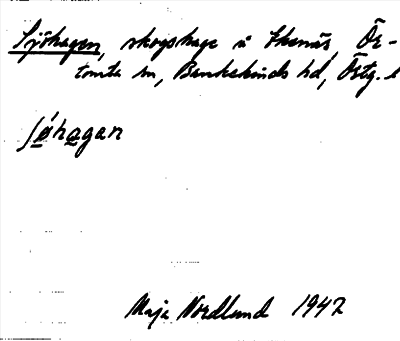 Sjöhagen, skogshage å Ekenäs, Ör-
tomta sn, Bankekinds hd, Östg. l
ʃǿhagan
Maja Nordlund 1947